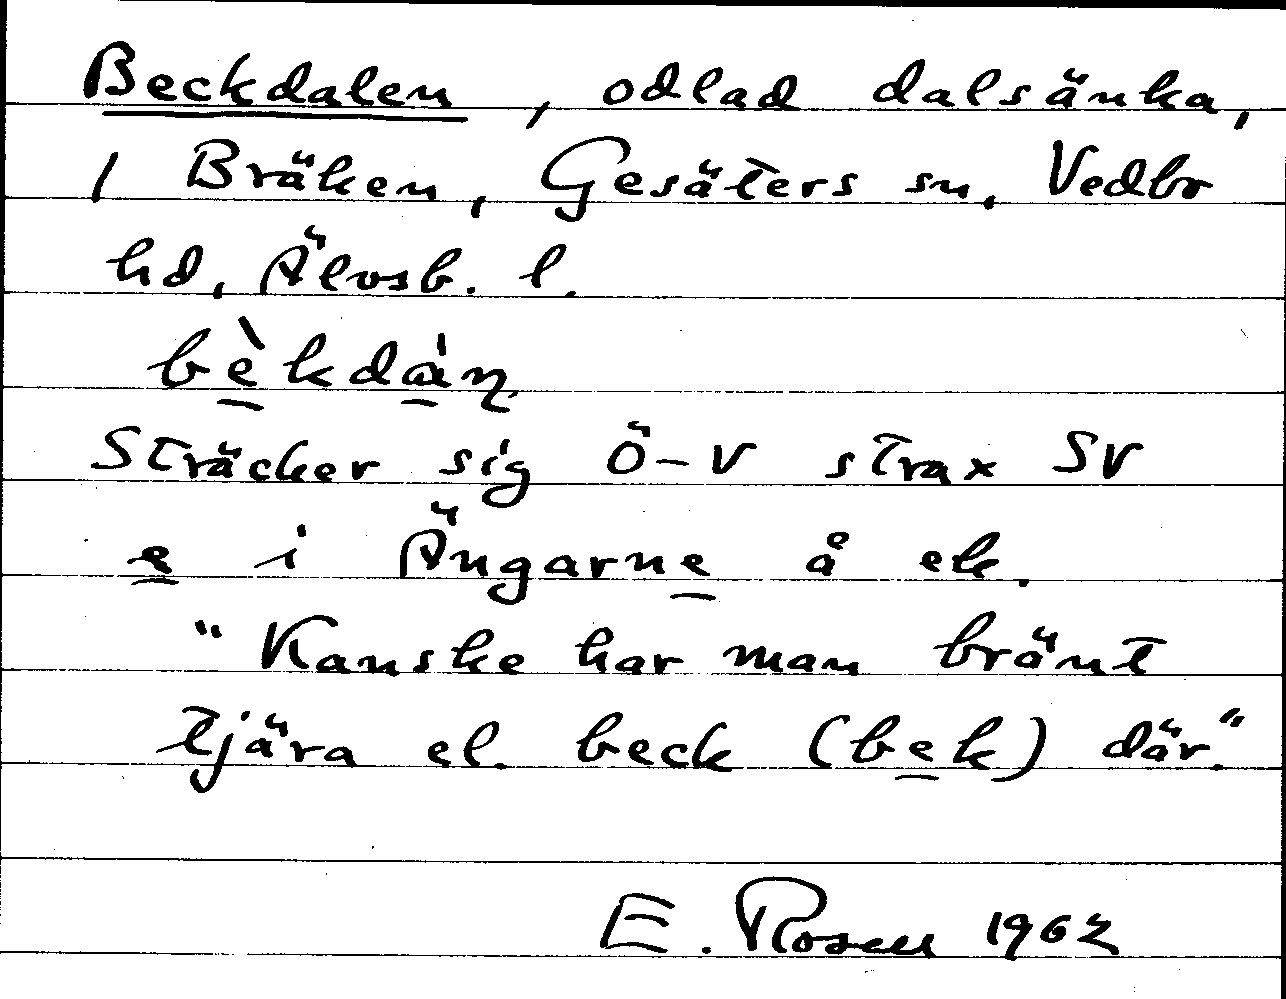 Beckdalen, odlad dalsänka,
/ Bräken, Gesäters sn, Vedbo
hd, Älvsb. l.
bèkdàn
Sträcker sig Ö-V strax SV
e i Ängarne å ek.
"Kanske har man bränt
tjära el. beck (bek) där."
E. Rosen 1962